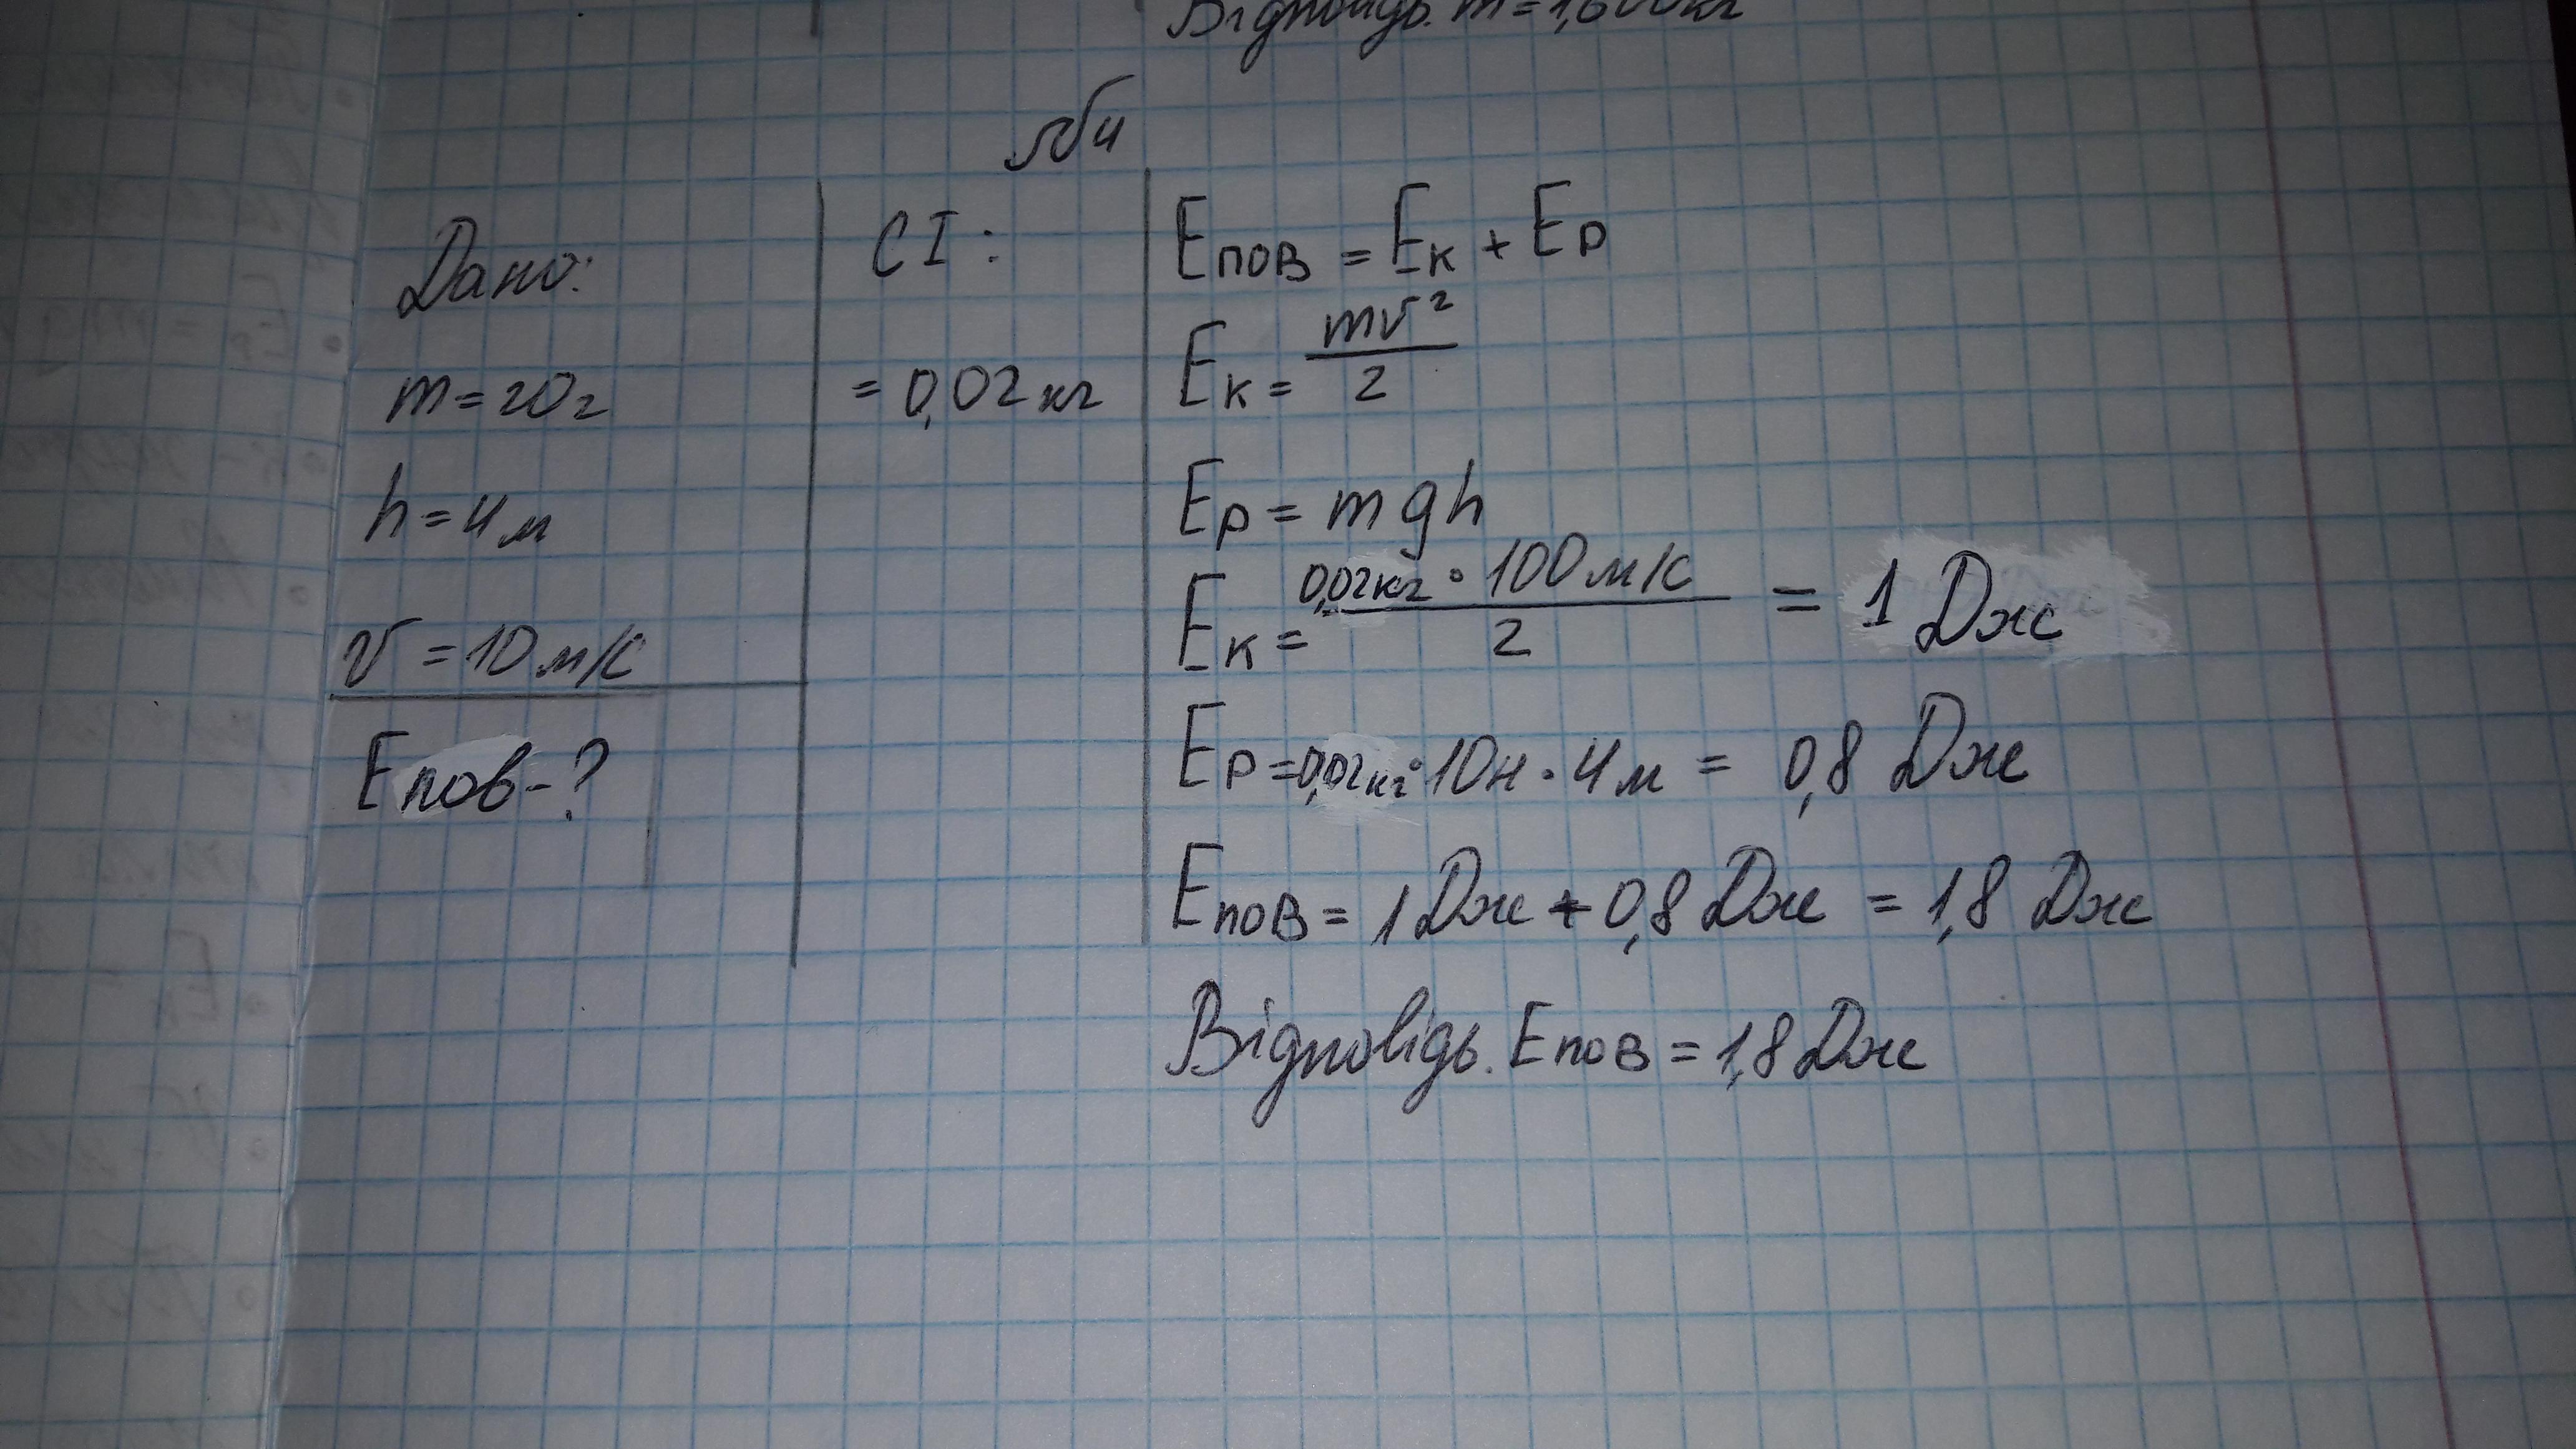 Відповідь. m = 1,600кг
№4
Дано:
m = 20г
h = 4м
v = 10 м/с
Eпов - ?
СІ:
= 0,02 кг
Eпов = Eк + Eр
Eк = mv² / 2
Eр = mgh
Eк = 0,02кг · 100 м/с / 2 = 1 Дж
Eр = 0,02кг · 10н · 4м = 0,8 Дж
Eпов = 1 Дж + 0,8 Дж = 1,8 Дж
Відповідь. Eпов = 1,8 Дж